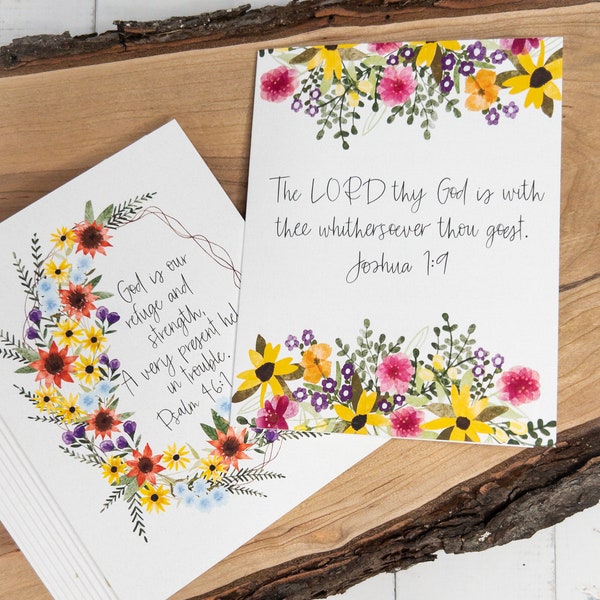 The LORD thy God is with
thee whithersoever thou goest.
Joshua 1:9
God is our
refuge and
strength,
A very present hel
in trouble.
Psalm 46:1